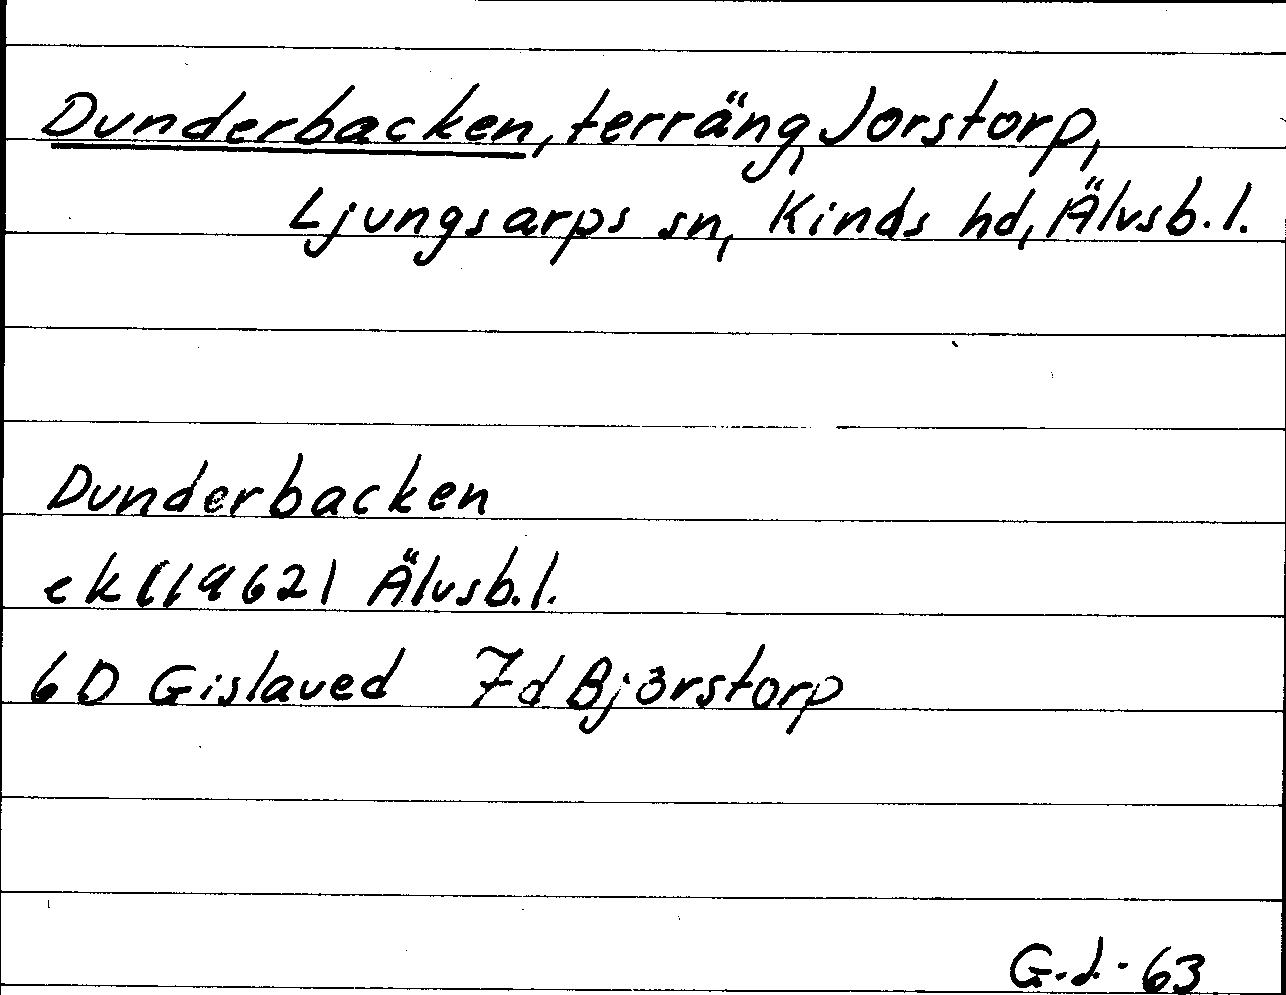 Dunderbacken, terräng, Jorstorp,
Ljungsarps sn, Kinds hd, Älvsb. l.
Dunderbacken
ek (1962) Älvsb. l.
6D Gislaved 7d Björstorp
G.L. 63